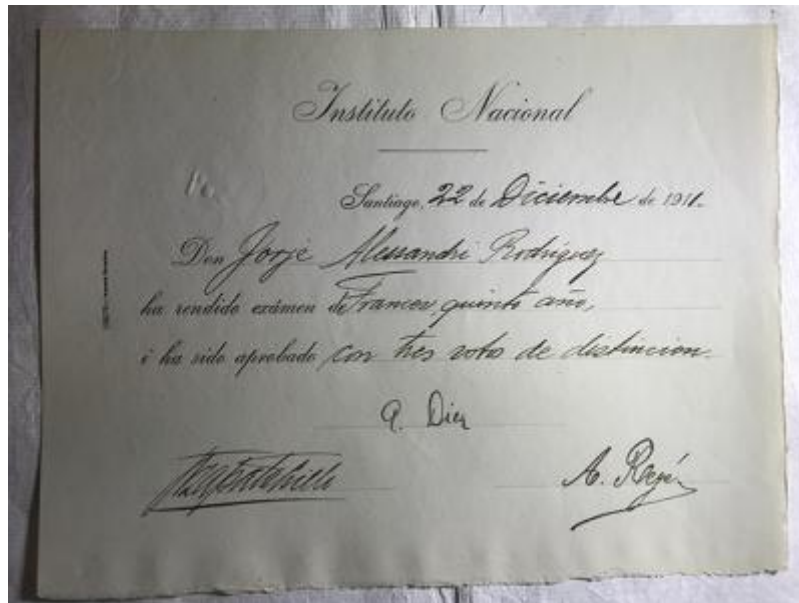 Instituto Nacional
Santiago, 22 de Diciembre de 1911.
Don Jorje Alessandri Rodriguez
ha rendido exámen de Frances, quinto año,
i ha sido aprobado con tres votos de distincion.
A. Rojé